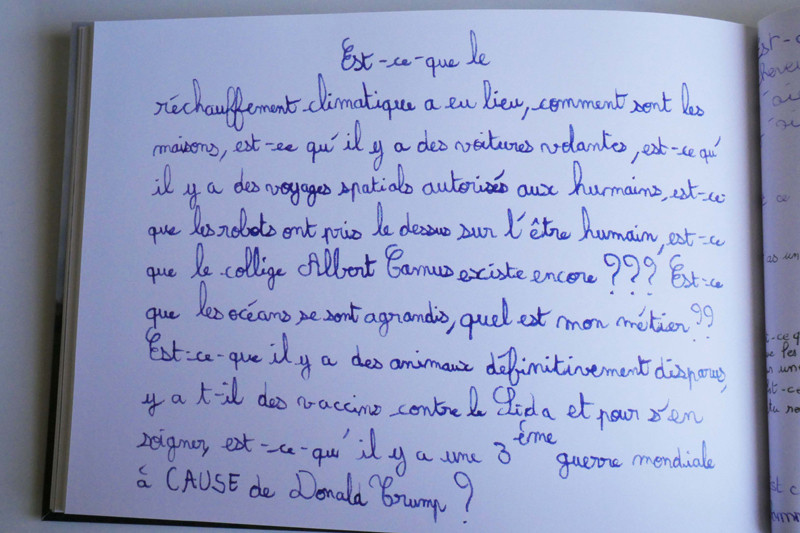 Est-ce-que le
réchauffement climatique a eu lieu, comment sont les
maisons, est-ce qu'il y a des voitures volantes, est-ce qu'
il y a des voyages spatials autorisés aux humains, est-ce
que les robots ont pris le dessus sur l'être humain, est-ce
que le collège Albert Camus existe encore ??? Est-ce
que les océans se sont agrandis, quel est mon métier ??
Est-ce-que il y a des animaux définitivement disparus,
y a t-il des vaccins contre le Sida et pour s'en
soigner, est-ce-qu'il y a une 3ème guerre mondiale
à CAUSE de Donald Trump ?